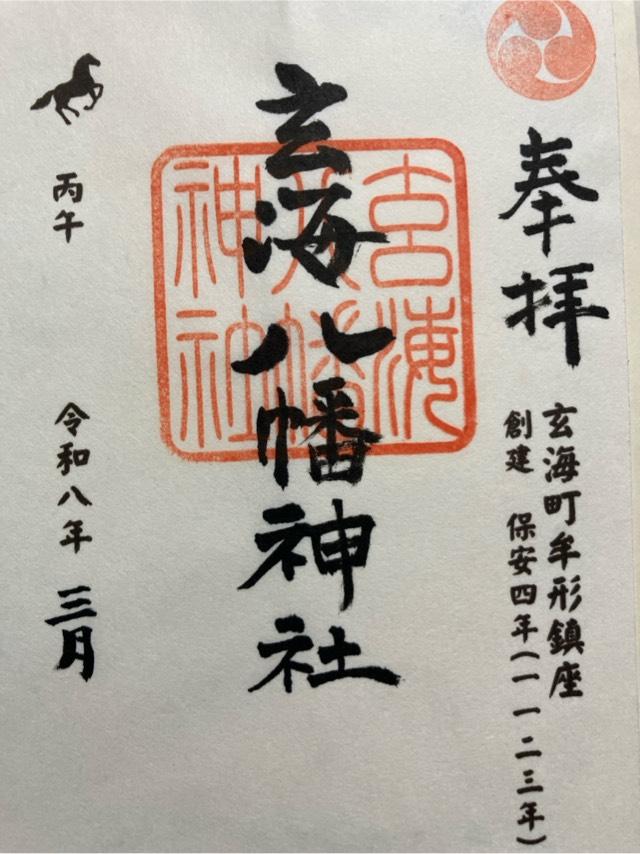 奉拝
玄海町牟形鎮座
創建 保安四年(一一二三年)
玄海八幡神社
玄海
八幡
神社
丙午
令和八年 三月